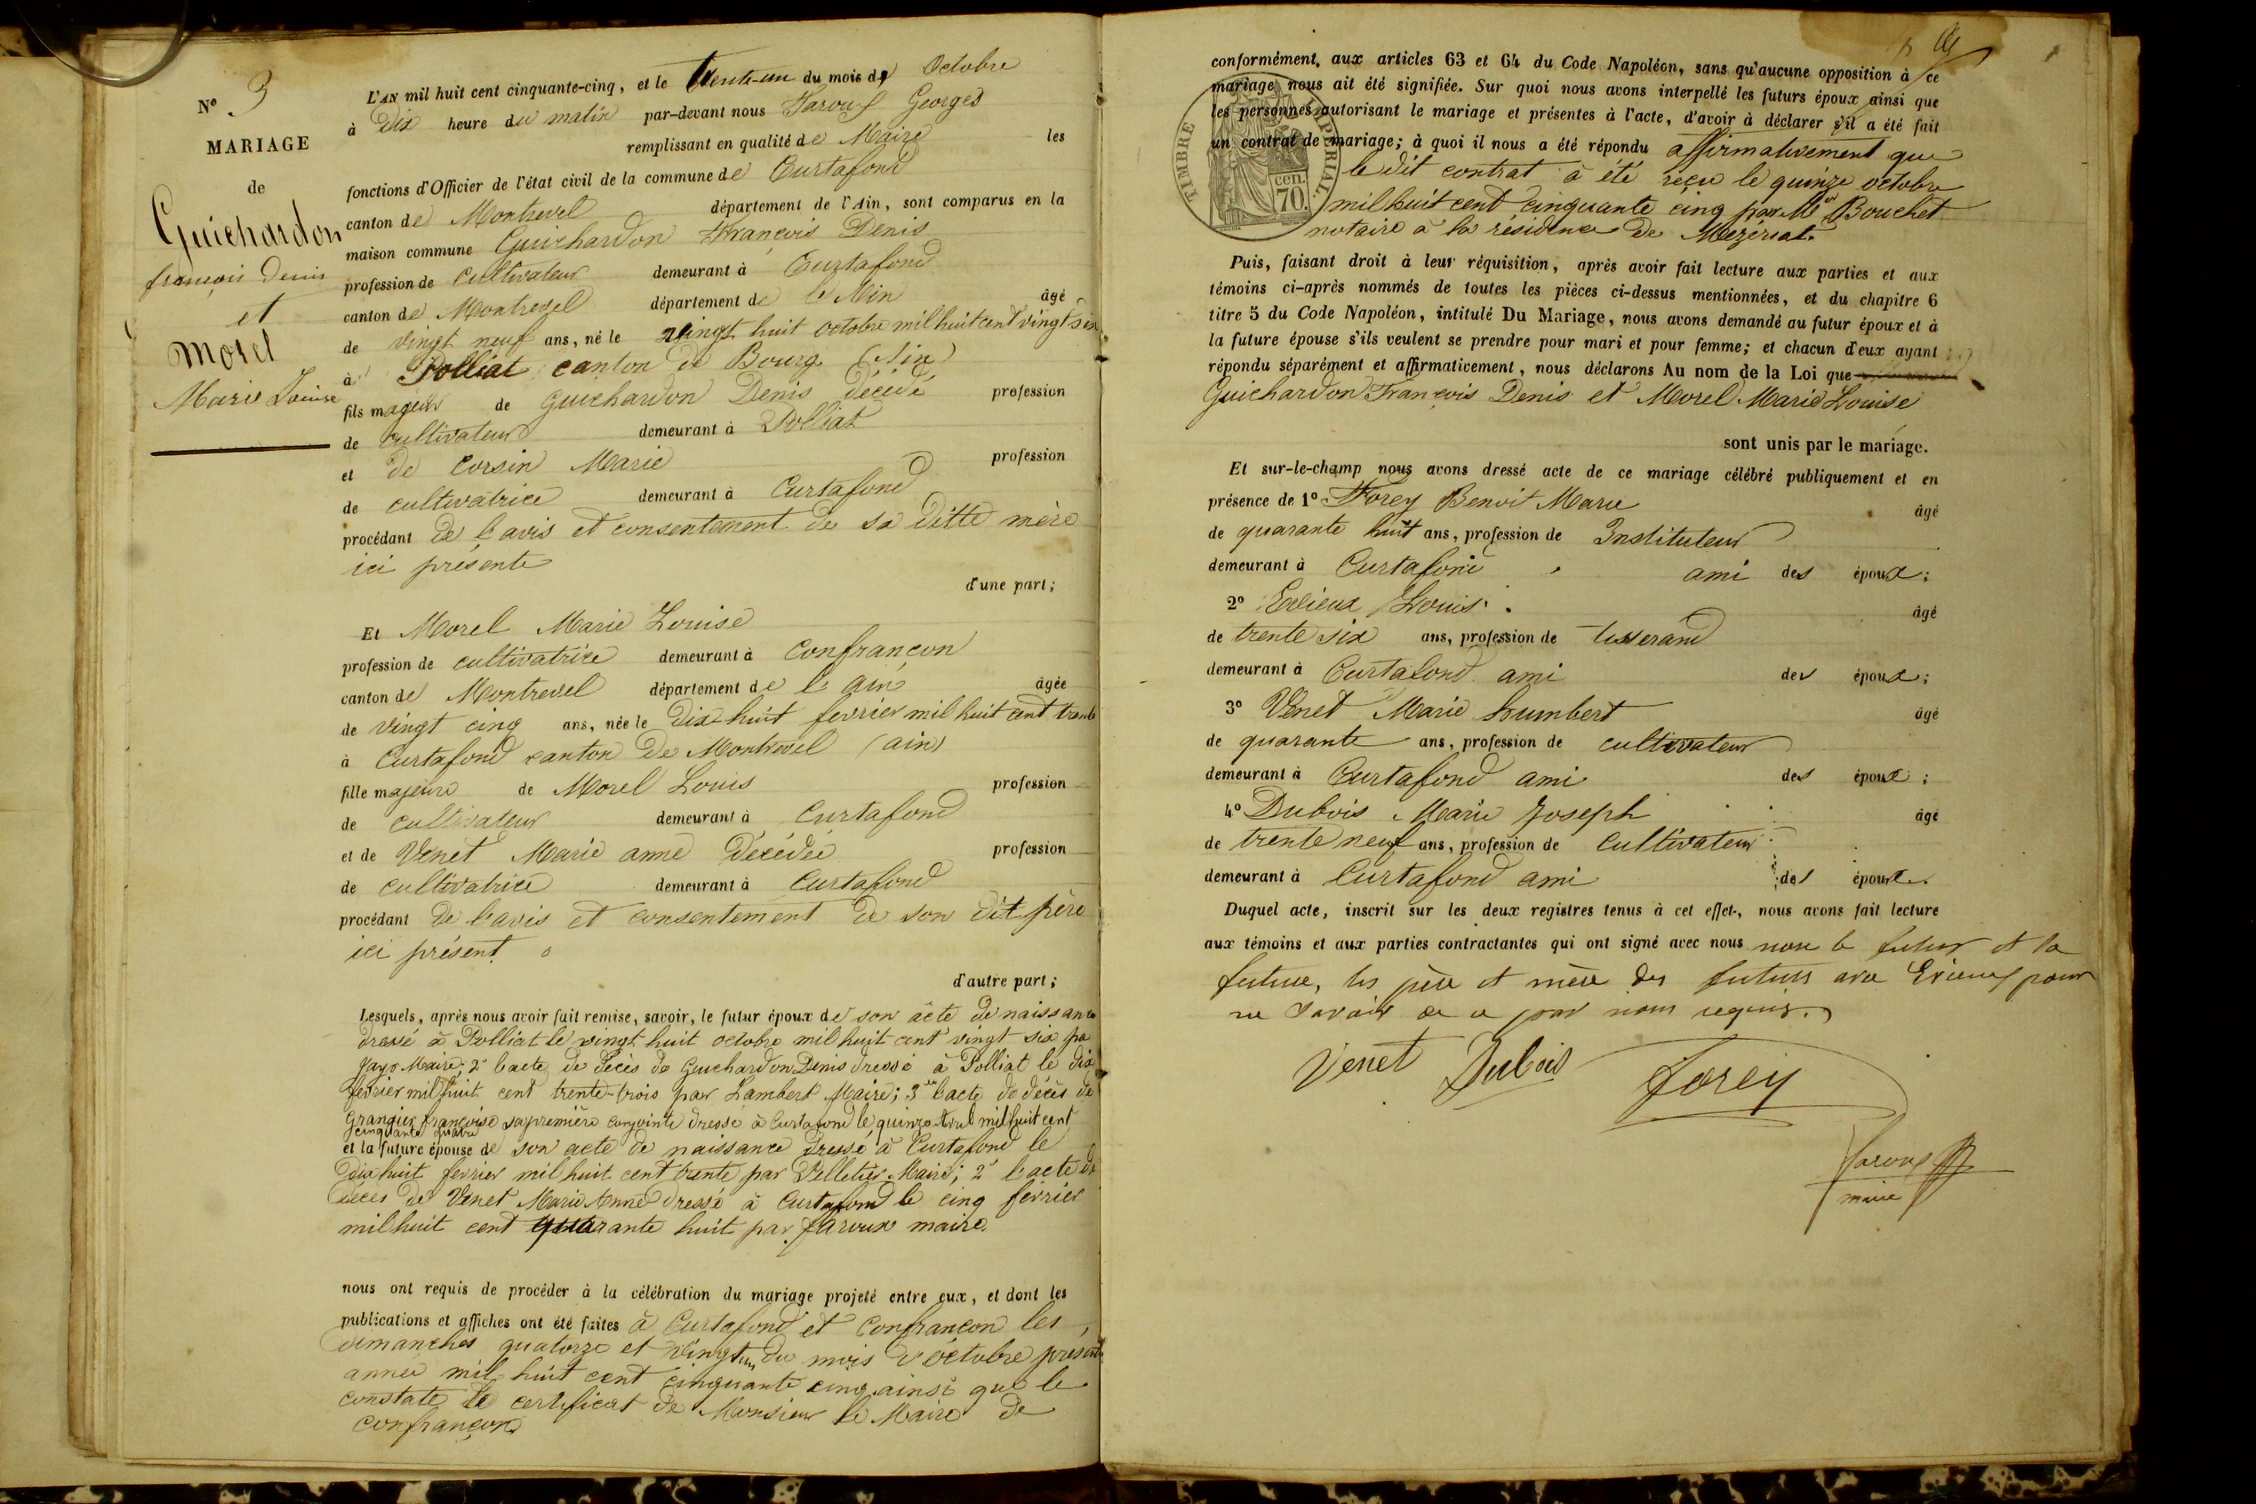 N° 3
MARIAGE
de
Guichardon
françois Denis
et
Morel
Marie Louise
L'AN mil huit cent cinquante-cinq, et le trente-un du mois de Octobre
à Dix heure du matin par-devant nous Faroux Georges
remplissant en qualité de Maire les
fonctions d'Officier de l'état civil de la commune de Curtafond
canton de Montrevel département de l'Ain, sont comparus en la
maison commune Guichardon François Denis
profession de cultivateur demeurant à Curtafond
canton de Montrevel département de l'Ain âgé
de vingt neuf ans, né le vingt huit octobre mil huit cent vingt six
à Polliat canton de Bourg (Ain)
fils majeur de Guichardon Denis décédé profession
de cultivateur demeurant à Polliat
et de Corsin Marie profession
de cultivatrice demeurant à Curtafond
procédant de l'avis et consentement de sa ditte mère
ici présente
d'une part;
Et Morel Marie Louise
profession de cultivatrice demeurant à Confrançon
canton de Montrevel département de l'ain âgée
de vingt cinq ans, née le dix huit fevrier mil huit cent trente
à Curtafond canton de Montrevel (ain)
fille majeure de Morel Louis profession
de cultivateur demeurant à Curtafond
et de Venet Marie anne décédée profession
de cultivatrice demeurant à Curtafond
procédant de l'avis et consentement de son dit père
ici présent
d'autre part;
Lesquels, après nous avoir fait remise, savoir, le futur époux de son acte de naissance
dressé à Polliat le vingt huit octobre mil huit cent vingt six pa
Maire; 2° l'acte de décès de Guichardon Denis dressé à Polliat le dix
fevrier mil huit cent trente-trois par Lambert Maire; 3° l'acte de décès de
Grangier françoise sa première conjointe dressé à Curtafond le quinze mil huit cent
cinquante quatre
et la future épouse de son acte de naissance dressé à Curtafond le
dix huit fevrier mil huit cent trente par Pelletier Maire; 2° l'acte de
décès de Venet Marie Anne dressé à Curtafond le cinq février
mil huit cent quarante huit par faroux maire.
nous ont requis de procéder à la célébration du mariage projeté entre eux, et dont les
publications et affiches ont été faites à Curtafond et Confrançon les
dimanches quatorze et vingt un du mois d'octobre présente
année mil huit cent cinquante cinq ainsi que le
constate le certificat de Monsieur le Maire de
confrançon
conformément, aux articles 63 et 64 du Code Napoléon, sans qu'aucune opposition à ce
mariage nous ait été signifiée. Sur quoi nous avons interpellé les futurs époux ainsi que
les personnes autorisant le mariage et présentes à l'acte, d'avoir à déclarer s'il a été fait
un contrat de mariage; à quoi il nous a été répondu affirmativement que
le dit contrat a été reçu le quinze octobre
mil huit cent cinquante cinq par M. Bouchet
notaire à la résidence de Mezeriat.
TIMBRE IMPERIAL
cen.
70.
Puis, faisant droit à leur réquisition, après avoir fait lecture aux parties et aux
témoins ci-après nommés de toutes les pièces ci-dessus mentionnées, et du chapitre 6
titre 5 du Code Napoléon, intitulé Du Mariage, nous avons demandé au futur époux et à
la future épouse s'ils veulent se prendre pour mari et pour femme; et chacun d'eux ayant
répondu séparément et affirmativement, nous déclarons Au nom de la Loi que
Guichardon François Denis et Morel Marie Louise
sont unis par le mariage.
Et sur-le-champ nous avons dressé acte de ce mariage célébré publiquement et en
présence de 1° Forey Benoit Marie âgé
de quarante huit ans, profession de Instituteur
demeurant à Curtafond ami des époux;
2° Louis âgé
de trente six ans, profession de tisserand
demeurant à Curtafond ami des époux;
3° Venet Marie humbert âgé
de quarante ans, profession de cultivateur
demeurant à Curtafond ami des époux;
4° Dubois Marie Joseph âgé
de trente neuf ans, profession de cultivateur
demeurant à Curtafond ami des époux.
Duquel acte, inscrit sur les deux registres tenus à cet effet, nous avons fait lecture
aux témoins et aux parties contractantes qui ont signé avec nous non le futur et la
future, les père et mère des futurs pour
ne savoir de ce par nous requis.
Venet Dubois Forey
Faroux
maire